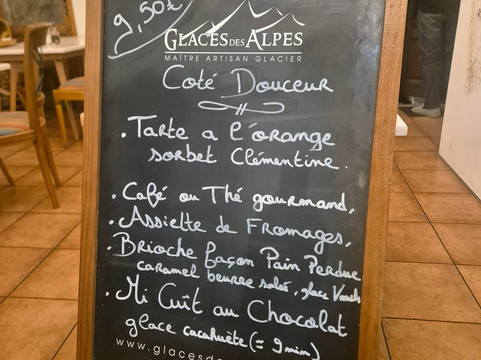 9,50€
GLACES DES ALPES
MAÎTRE ARTISAN GLACIER
Coté Douceur
. Tarte a l'orange
sorbet Clémentine.
. Café ou Thé gourmand,
. Assiette de Fromages,
. Brioche façon Pain Perdue
caramel beurre salé, glace Vanille
. Mi Cuît au Chocolat
glace cacahuète (= 9 min)
www.glacesde